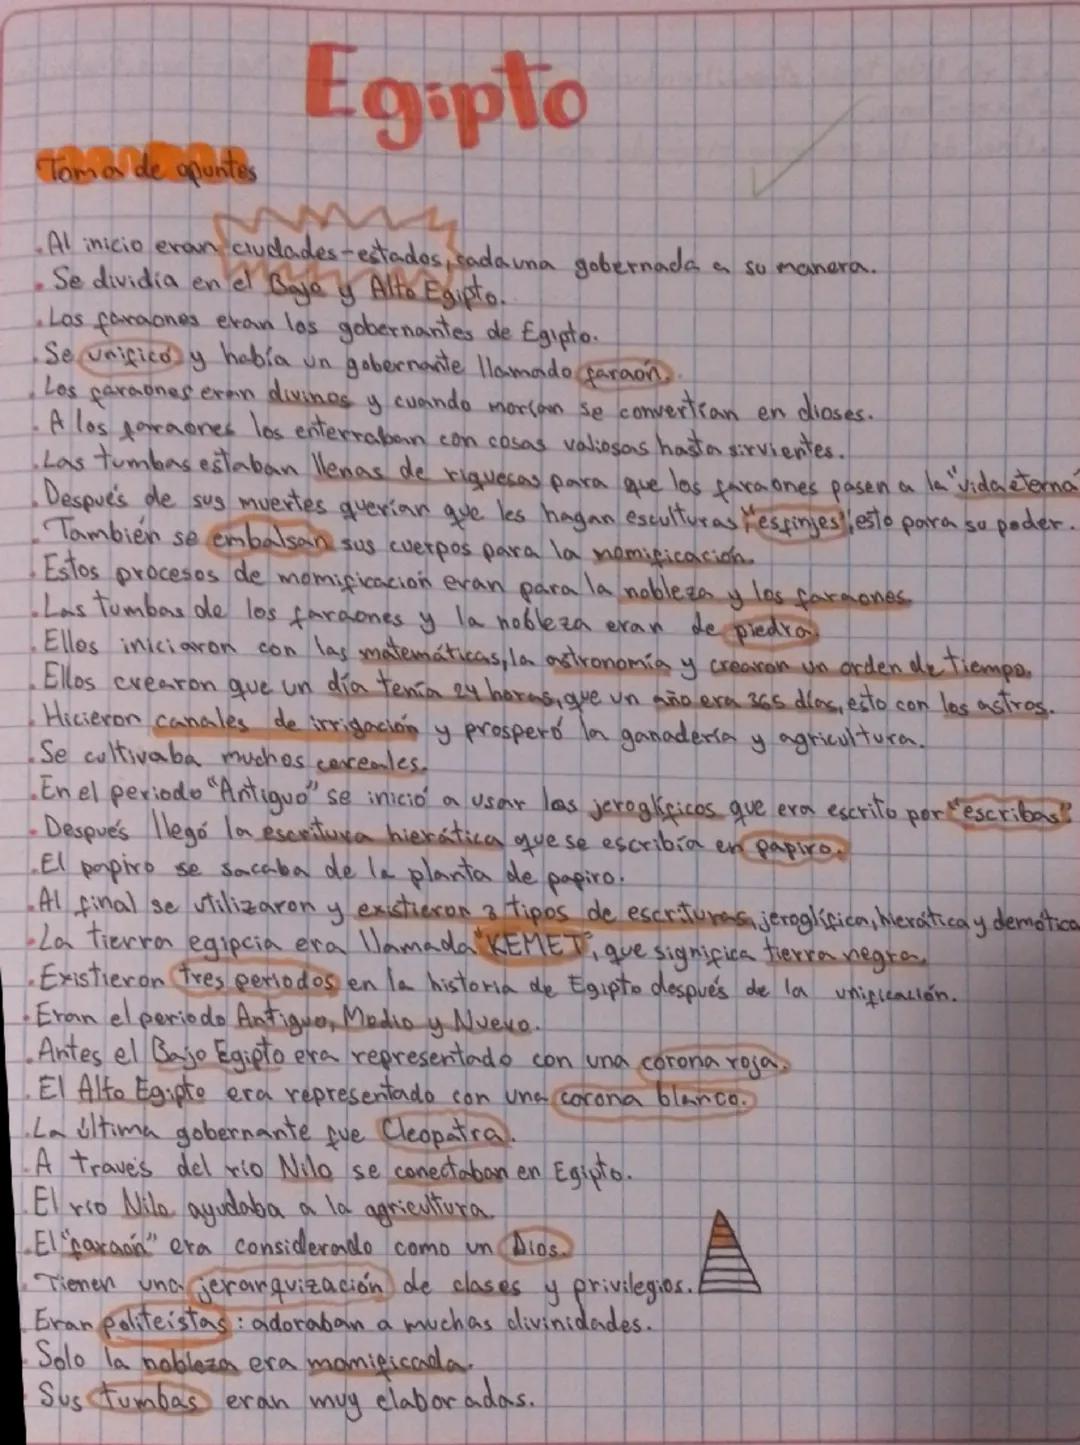 Egipto
Toma de apuntes
.Al inicio eran ciudades-estados, cada una gobernada a su manera.
. Se dividía en el Bajo y Alto Egipto.
.Los faraones eran los gobernantes de Egipto.
.Se unificó y había un gobernante llamado faraón.
. Los faraones eran divinos y cuando morían se convertían en dioses.
. A los faraones los enterraban con cosas valiosas hasta sirvientes.
.Las tumbas estaban llenas de riquesas para que los faraones pasen a la "vida eterna"
.Después de sus muertes querían que les hagan esculturas "esfinjes", esto para su poder.
.También se embalsan sus cuerpos para la momificación.
.Estos procesos de momificación eran para la nobleza y los faraones.
.Las tumbas de los faraones y la nobleza eran de piedra.
.Ellos iniciaron con las matemáticas, la astronomía y crearon un orden de tiempo.
.Ellos crearon que un día tenía 24 horas, que un año era 365 días, esto con los astros.
. Hicieron canales de irrigación y prosperó la ganadería y agricultura.
.Se cultivaba muchos cereales.
.En el periodo "Antiguo" se inició a usar los jeroglíficos que era escrito por "escribas"
. Después llegó la escritura hierática que se escribía en papiro.
.El papiro se sacaba de la planta de papiro.
.Al final se utilizaron y existieron 3 tipos de escrituras, jeroglífica, hierática y demótica
.La tierra egipcia era llamada "KEMET", que significa tierra negra.
.Existieron tres periodos en la historia de Egipto después de la unificación.
.Eran el periodo Antiguo, Medio y Nuevo.
.Antes el Bajo Egipto era representado con una corona roja.
.El Alto Egipto era representado con una corona blanca.
.La última gobernante fue Cleopatra.
.A través del río Nilo se conectaban en Egipto.
.El río Nilo ayudaba a la agricultura.
.El "faraón" era considerado como un Dios.
. Tienen una jerarquización de clases y privilegios.
. Eran politeístas: adoraban a muchas divinidades.
. Solo la nobleza era momificada.
. Sus tumbas eran muy elaboradas.